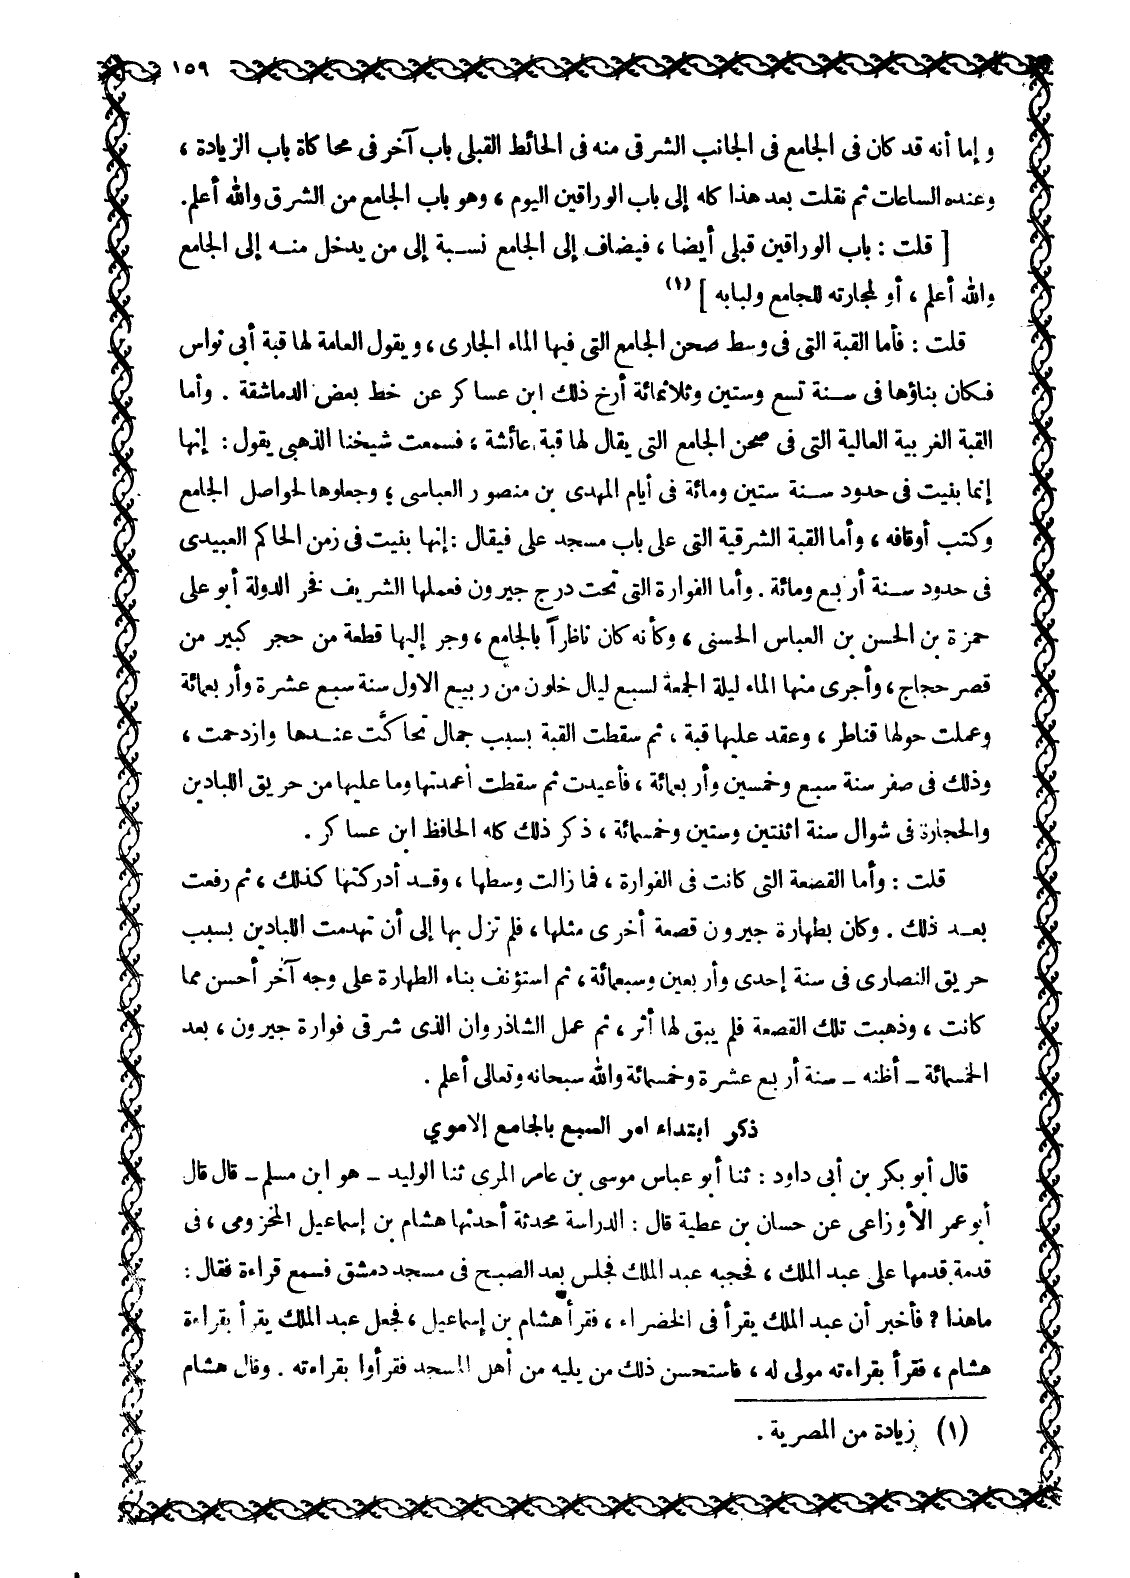 ١٥٩
و إما أنه قد كان فى الجامع فى الجانب الشرقى منه فى الحائط القبلى باب آخر فى محاكاة باب الزيادة ،
وعنده الساعات ثم نقلت بعد هذا كله إلى باب الوراقين اليوم ، وهو باب الجامع من الشرق والله أعلم.
[ قلت : باب الوراقين قبلى أيضا ، فيضاف إلى الجامع نسبة إلى من يدخل منه إلى الجامع
والله أعلم ، أو لمجارته للجامع ولبابه ] (١)
قلت : فأما القبة التى فى وسط صحن الجامع التى فيها الماء الجارى ، ويقول العامة لها قبة أبى نواس
فكان بناؤها فى سنة تسع وستين وثلاثمائة أرخ ذلك ابن عساكر عن خط بعض الدماشقة . وأما
القبة الغربية العالية التى فى صحن الجامع التى يقال لها قبة عائشة ، فسمعت شيخنا الذهبى يقول : إنها
إنما بنيت فى حدود سنة ستين ومائة فى أيام المهدى بن منصور العباسى ، وجعلوها لحواصل الجامع
وكتب أوقافه ، وأما القبة الشرقية التى على باب مسجد على فيقال : إنها بنيت فى زمن الحاكم العبيدى
فى حدود سنة أربع ومائة . وأما الفوارة التى تحت درج جيرون فعملها الشريف فخر الدولة أبو على
حمزة بن الحسن بن العباس الحسنى ، وكأنه كان ناظراً بالجامع ، وجر إليها قطعة من حجر كبير من
قصر حجاج ، وأجرى منها الماء ليلة الجمعة لسبع ليال خلون من ربيع الاول سنة سبع عشرة وأربعمائة
وعملت حولها قناطر ، وعقد عليها قبة ، ثم سقطت القبة بسبب جمال تحاكَّت عندها وازدحمت ،
وذلك فى صفر سنة سبع وخمسين وأربعمائة ، فأعيدت ثم سقطت أعمدتها وما عليها من حريق اللبادين
والحجارة فى شوال سنة اثنتين وستين وخمسمائة ، ذكر ذلك كله الحافظ ابن عساكر .
قلت : وأما القصعة التى كانت فى الفوارة ، فما زالت وسطها ، وقد أدركتها كذلك ، ثم رفعت
بعد ذلك . وكان بطهارة جيرون قصعة أخرى مثلها ، فلم تزل بها إلى أن تهدمت اللبادين بسبب
حريق النصارى فى سنة إحدى وأربعين وسبعمائة ، ثم استؤنف بناء الطهارة على وجه آخر أحسن مما
كانت ، وذهبت تلك القصعة فلم يبق لها أثر ، ثم عمل الشاذروان الذى شرقى فوارة جيرون ، بعد
الخسمائة ــ أظنه ــ سنة أربع عشرة وخمسمائة والله سبحانه وتعالى أعلم .
ذكر ابتداء امر السبع بالجامع الاموي
قال أبو بكر بن أبى داود : ثنا أبو عباس موسى بن عامر المرى ثنا الوليد ــ هو ابن مسلم ــ قال قال
أبو عمر الأوزاعى عن حسان بن عطية قال : الدراسة محدثة أحدثها هشام بن إسماعيل المخزومى ، فى
قدمة قدمها على عبد الملك ، فحجبه عبد الملك فجلس بعد الصبح فى مسجد دمشق فسمع قراءة فقال :
ماهذا ؟ فأخبر أن عبد الملك يقرأ فى الخضراء ، فقرأ هشام بن إسماعيل ، فجعل عبد الملك يقرأ بقراءة
هشام ، فقرأ بقراءته مولى له ، فاستحسن ذلك من يليه من أهل المسجد فقرأوا بقراءته . وقال هشام
(١) زيادة من المصرية .